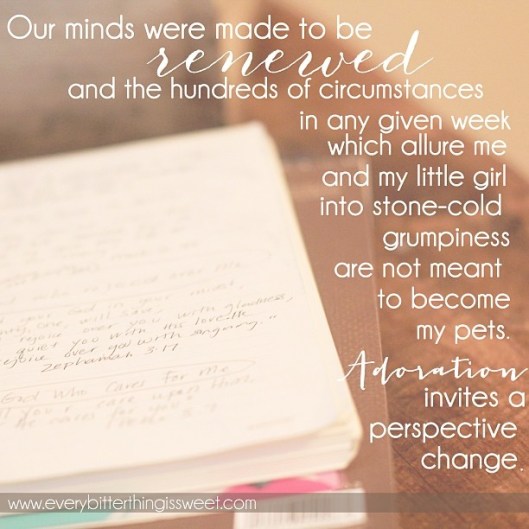 Our minds were made to be
renewed
and the hundreds of circumstances
in any given week
which allure me
and my little girl
into stone-cold
grumpiness
are not meant
to become
my pets.
Adoration
invites a
perspective
change.
quiet you with His love
rejoice over you with singing."
Zephaniah 3:17
God Who Cares For me
www.everybitterthingissweet.com